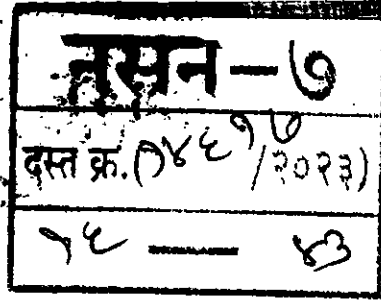 नसन - ७
दस्त क्र.(१४६१७/२०२३)
१६ — ४३